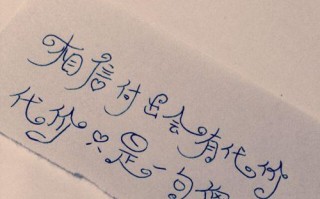 相信付出会有代价
代价只是一句